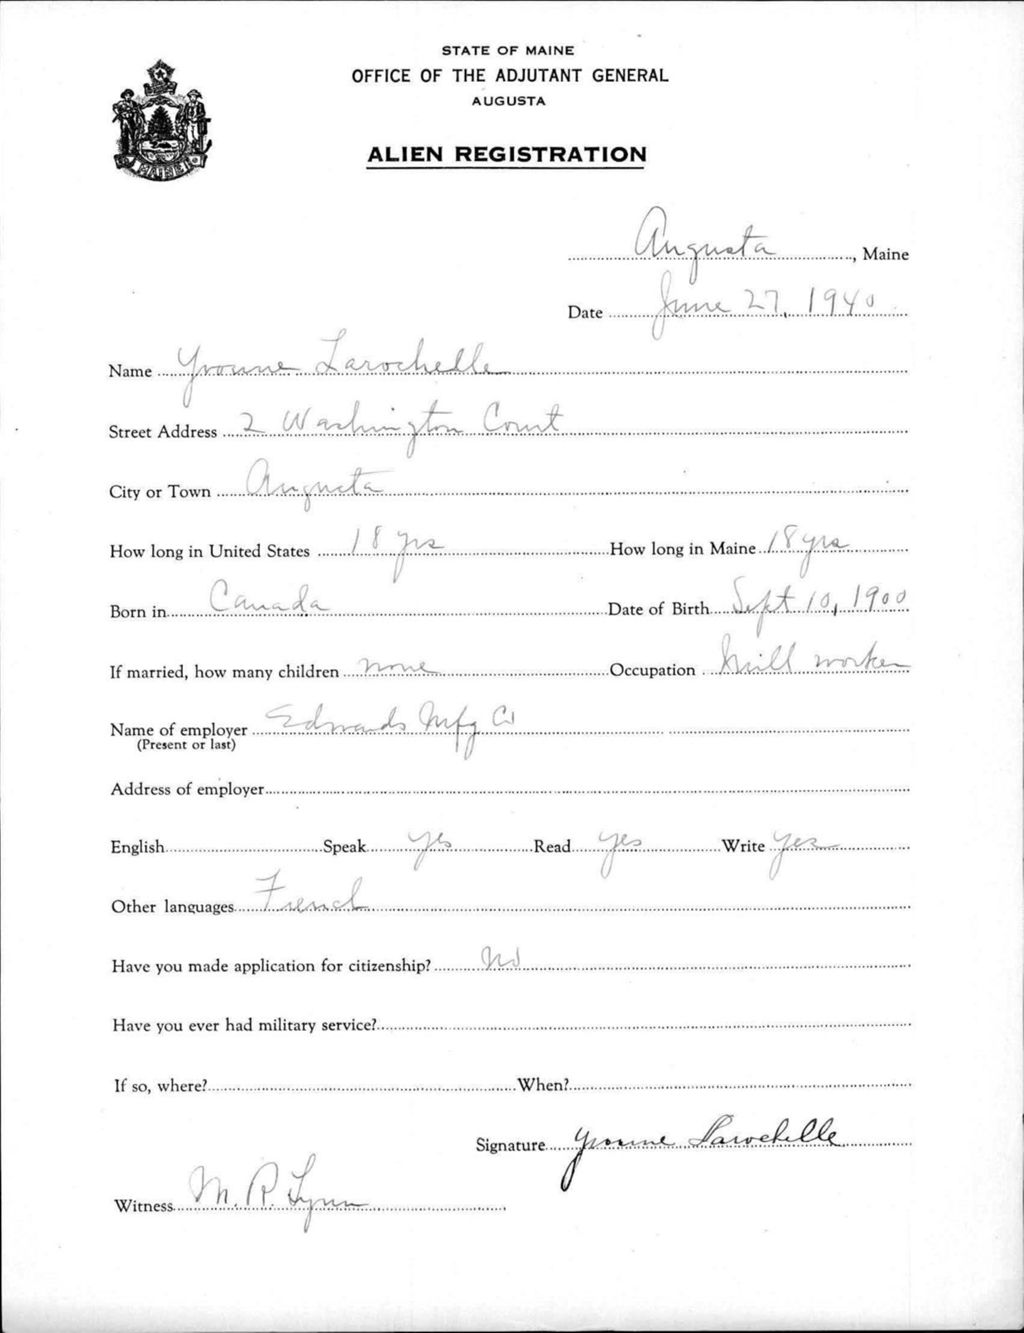 STATE OF MAINE
OFFICE OF THE ADJUTANT GENERAL
AUGUSTA
ALIEN REGISTRATION
MAINE
Augusta, Maine
Date June 27, 1940
Name Yvonne Larochelle
Street Address 2 Washington Court
City or Town Augusta
How long in United States 18 yrs How long in Maine 18 yrs
Born in Canada Date of Birth Sept 10, 1900
If married, how many children none Occupation Mill worker
Name of employer Edwards Mfg Co
(Present or last)
Address of employer
English Speak yes Read yes Write yes
Other languages French
Have you made application for citizenship? No
Have you ever had military service?
If so, where? When?
Signature Yvonne Larochelle
Witness M. R. Lynn